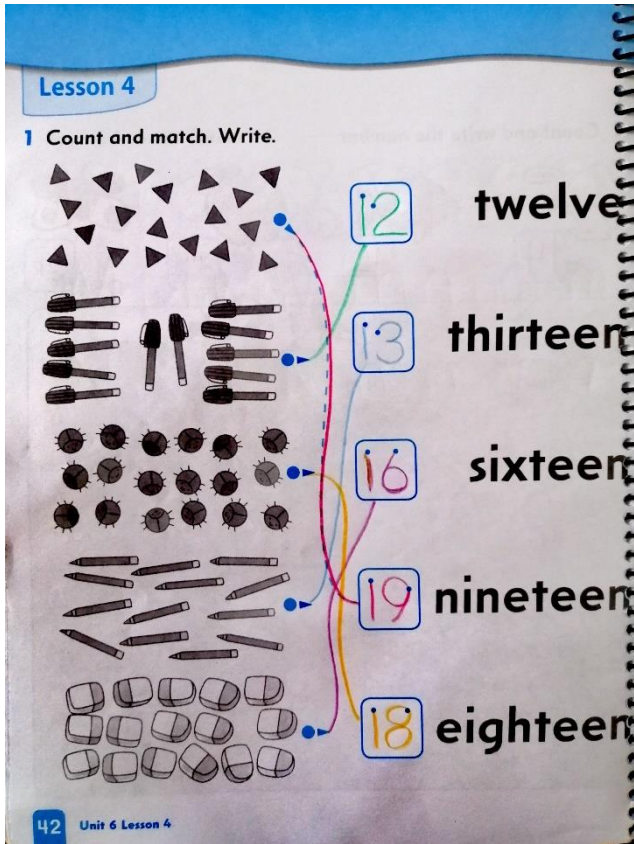 Lesson 4
1 Count and match. Write.
12 twelve
13 thirteen
16 sixteen
19 nineteen
18 eighteen
42 Unit 6 Lesson 4